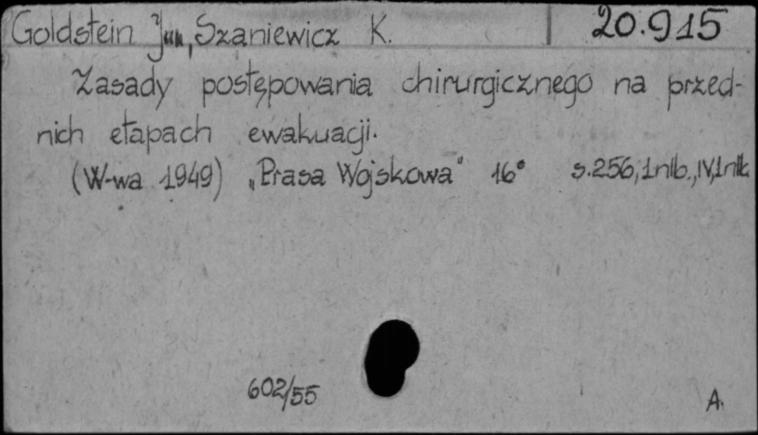 Goldstein Jan, Szaniewicz K. 20.915
Zasady postępowania chirurgicznego na przed-
nich etapach ewakuacji.
(W-wa 1949) „Prasa Wojskowa" 16° s.256, 1nlb., IV, 1nlb.
602/55
A.